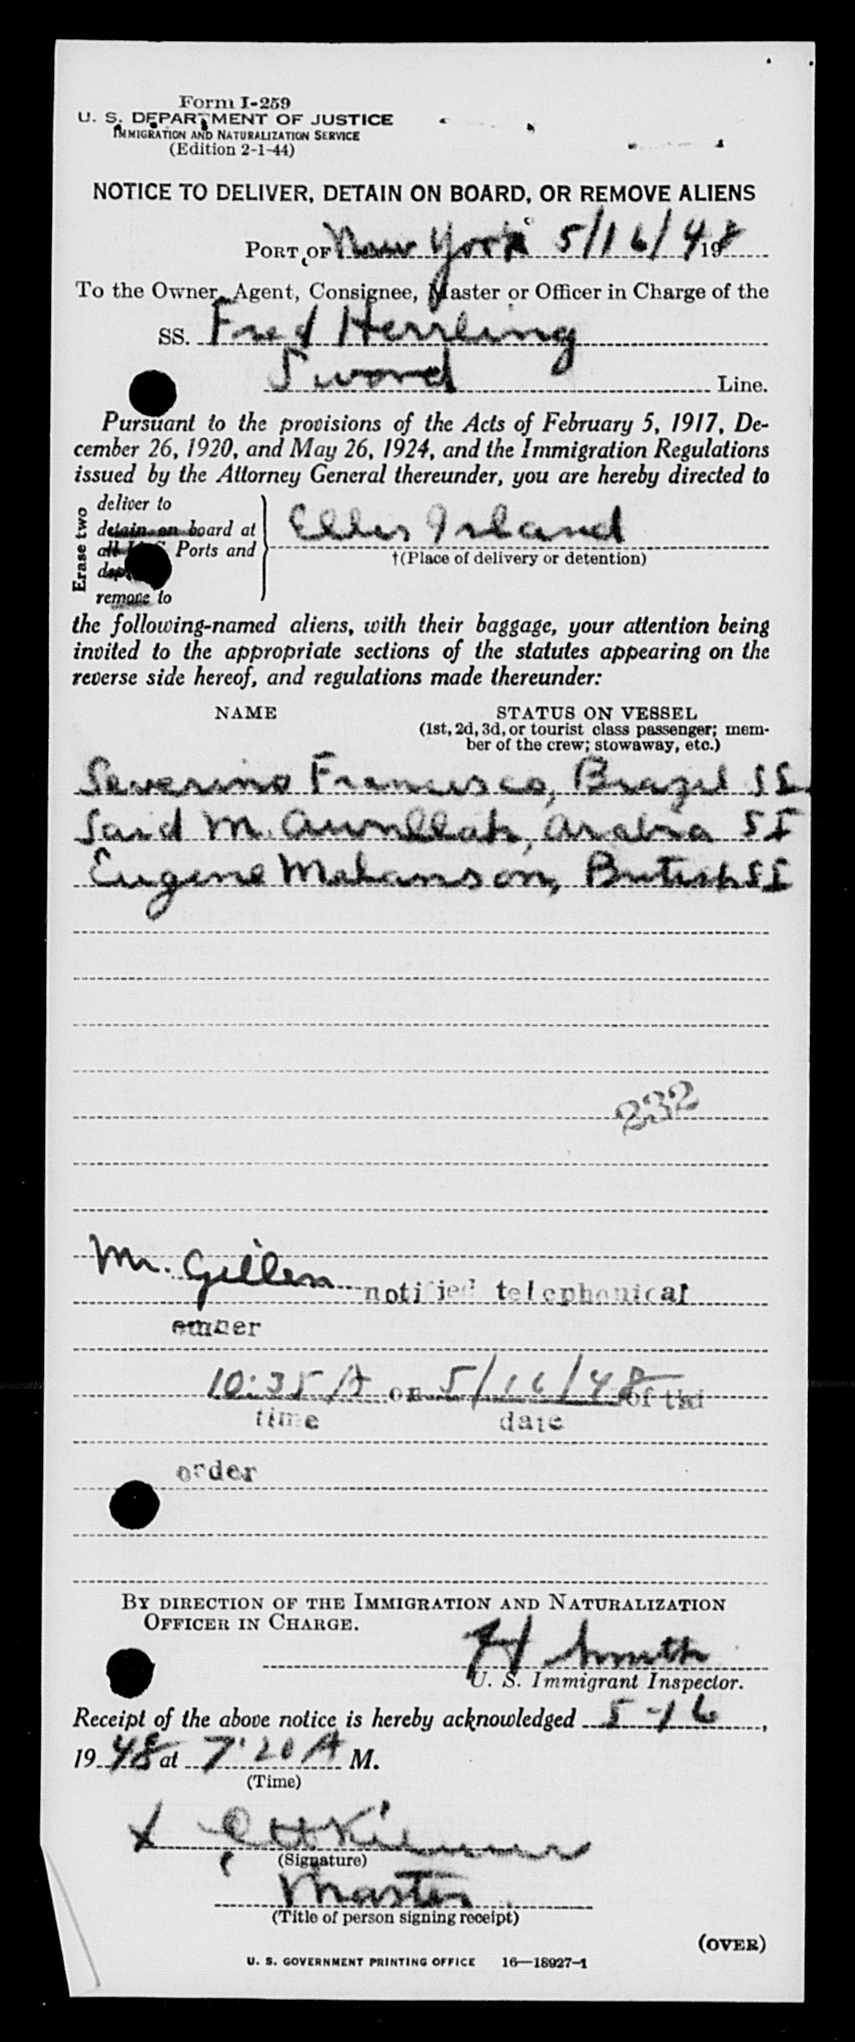 Form I-259
U. S. DEPARTMENT OF JUSTICE
IMMIGRATION AND NATURALIZATION SERVICE
(Edition 2-1-44)
NOTICE TO DELIVER, DETAIN ON BOARD, OR REMOVE ALIENS
PORT OF New York 5/16/48 19
To the Owner, Agent, Consignee, Master or Officer in Charge of the
SS. Fred Herrling
Sword Line.
Pursuant to the provisions of the Acts of February 5, 1917, De-
cember 26, 1920, and May 26, 1924, and the Immigration Regulations
issued by the Attorney General thereunder, you are hereby directed to
Erase two
deliver to
detain on board at
all Ports and
remove to
Ellis Island
†(Place of delivery or detention)
the following-named aliens, with their baggage, your attention being
invited to the appropriate sections of the statutes appearing on the
reverse side hereof, and regulations made thereunder:
NAME STATUS ON VESSEL
(1st, 2d, 3d, or tourist class passenger; mem-
ber of the crew; stowaway, etc.)
Severino Francisco, Brazil SI
Said M. Awnllah, Arabia SI
Eugene Mahanson, British SI
232
Mr. Gillen notified telephonical
owner
10:35 A on 5/16/48 of thi
time date
order
BY DIRECTION OF THE IMMIGRATION AND NATURALIZATION
OFFICER IN CHARGE.
H Smith
U. S. Immigrant Inspector.
Receipt of the above notice is hereby acknowledged 5-16,
1948 at 7:20 A M.
(Time)
X
(Signature)
Master
(Title of person signing receipt)
(OVER)
U. S. GOVERNMENT PRINTING OFFICE 16—18927-1